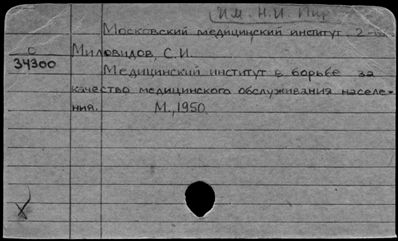 им. Н.И. Пир
Московский медицинский институт. 2-й
с Миловидов, С.И.
34300
Медицинский институт в борьбе за
качество медицинского обслуживания населе-
ния. М., 1950